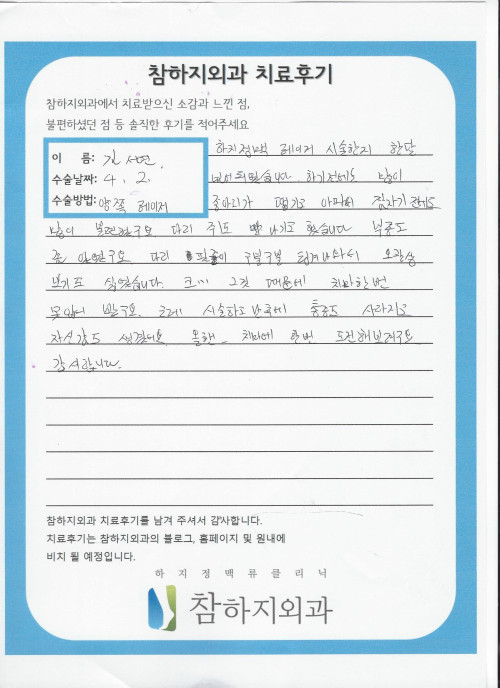 참하지외과 치료후기
참하지외과에서 치료받으신 소감과 느낀 점,
불편하셨던 점 등 솔직한 후기를 적어주세요
이 름: 김서연.
수술날짜: 4. 2.
수술방법: 양쪽 레이저
하지정맥 레이저 시술한지 한달
되었습니다. 하기전에는 많이
종아리가 떙기고 아파서 잠자기 전에도
많이 불편했구요 다리 쥐도 많이 나기도 했습니다 부종도
좀 있었구요 다리 핏줄이 구불구불 튀어나와서
보기도 싫었습니다. 그것 때문에 치마한번
못입어 봤구요. 근데 시술하고 난 후에 통증도 사라지고
자신감도 생겼네요. 올핸 치마에 한번 도전해보려구요
감사합니다.
참하지외과 치료후기를 남겨 주셔서 감사합니다.
치료후기는 참하지외과의 블로그, 홈페이지 및 원내에
비치 될 예정입니다.
하지정맥류클리닉
참하지외과